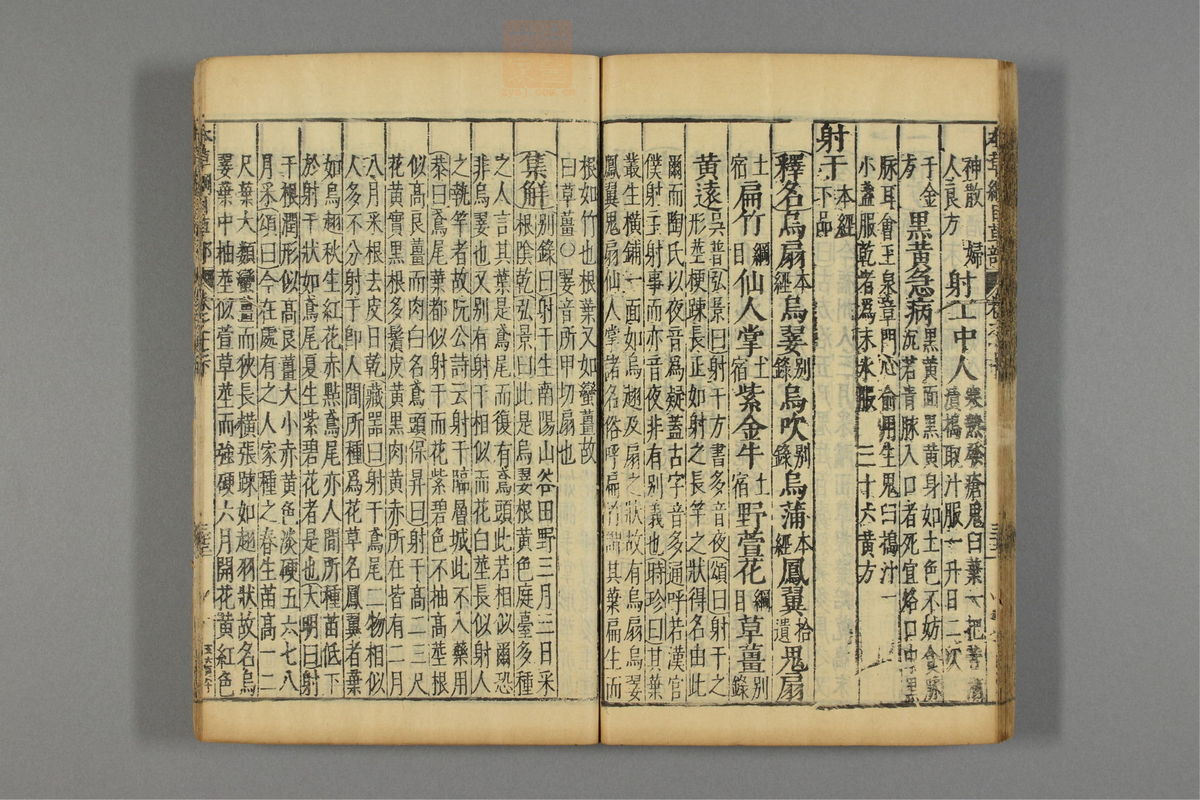 神散 婦
人良方 射工中人 寒熱發瘡鬼臼葉一把
千金 黑黃急病 黑黃面黑黃身如土色不妨食脉
方 沉若青脉入口者死宜烙口中
脉耳會玉泉章門心俞用生鬼臼搗汁一
小盞服乾者為末水服 三十六黃方
射干 本經下品
釋名烏扇 本經 烏翣 別錄 烏吹 別錄 烏蒲 本經 鳳翼 拾遺 鬼扇
土宿 扁竹 綱目 仙人掌 土宿 紫金牛 土宿 野萱花 綱目 草薑 別錄
黃遠 吳普 弘景曰射干方書多音夜頌曰射干之
形莖梗踈長正如射之長竿之狀得名由此
爾而陶氏以夜音為疑蓋古字音多通呼若漢官
僕射主射事而亦音夜非有別義也時珍曰其葉
叢生橫鋪一面如烏翅及扇之狀故有烏扇烏翣
鳳翼鬼扇仙人掌諸名俗呼扁竹謂其葉扁生而
根如竹也根葉又如蠻薑故
曰草薑○翣音所甲切扇也
集解 別錄曰射干生南陽山谷田野三月三日采
根陰乾弘景曰此是烏翣根黃色庭臺多種
之人言其葉是鳶尾而復有鳶頭此若相似爾恐
非烏翣也又別有射干相似而花白莖長似射人
之執竿者故阮公詩云射干臨層城此不入藥用
恭曰鳶尾葉都似射干而花紫碧色不抽高莖根
似高良薑而肉白名鳶頭保昇曰射干高二三尺
花黃實黑根多鬚皮黃黑肉黃赤所在皆有二月
八月采根去皮日乾藏器曰射干鳶尾二物相似
人多不分射干即人間所種為花草名鳳翼者葉
如烏翅秋生紅花赤點鳶尾亦人間所種苗低下
於射干狀如鳶尾夏生紫碧花者是也大明曰射
干根潤形似高良薑大小赤黃色淡硬五六七八
月采頌曰今在處有之人家種之春生苗高一二
尺葉大類蠻薑而狹長橫張踈如翅羽狀故名烏
翣葉中抽莖似萱草莖而強硬六月開花黃紅色